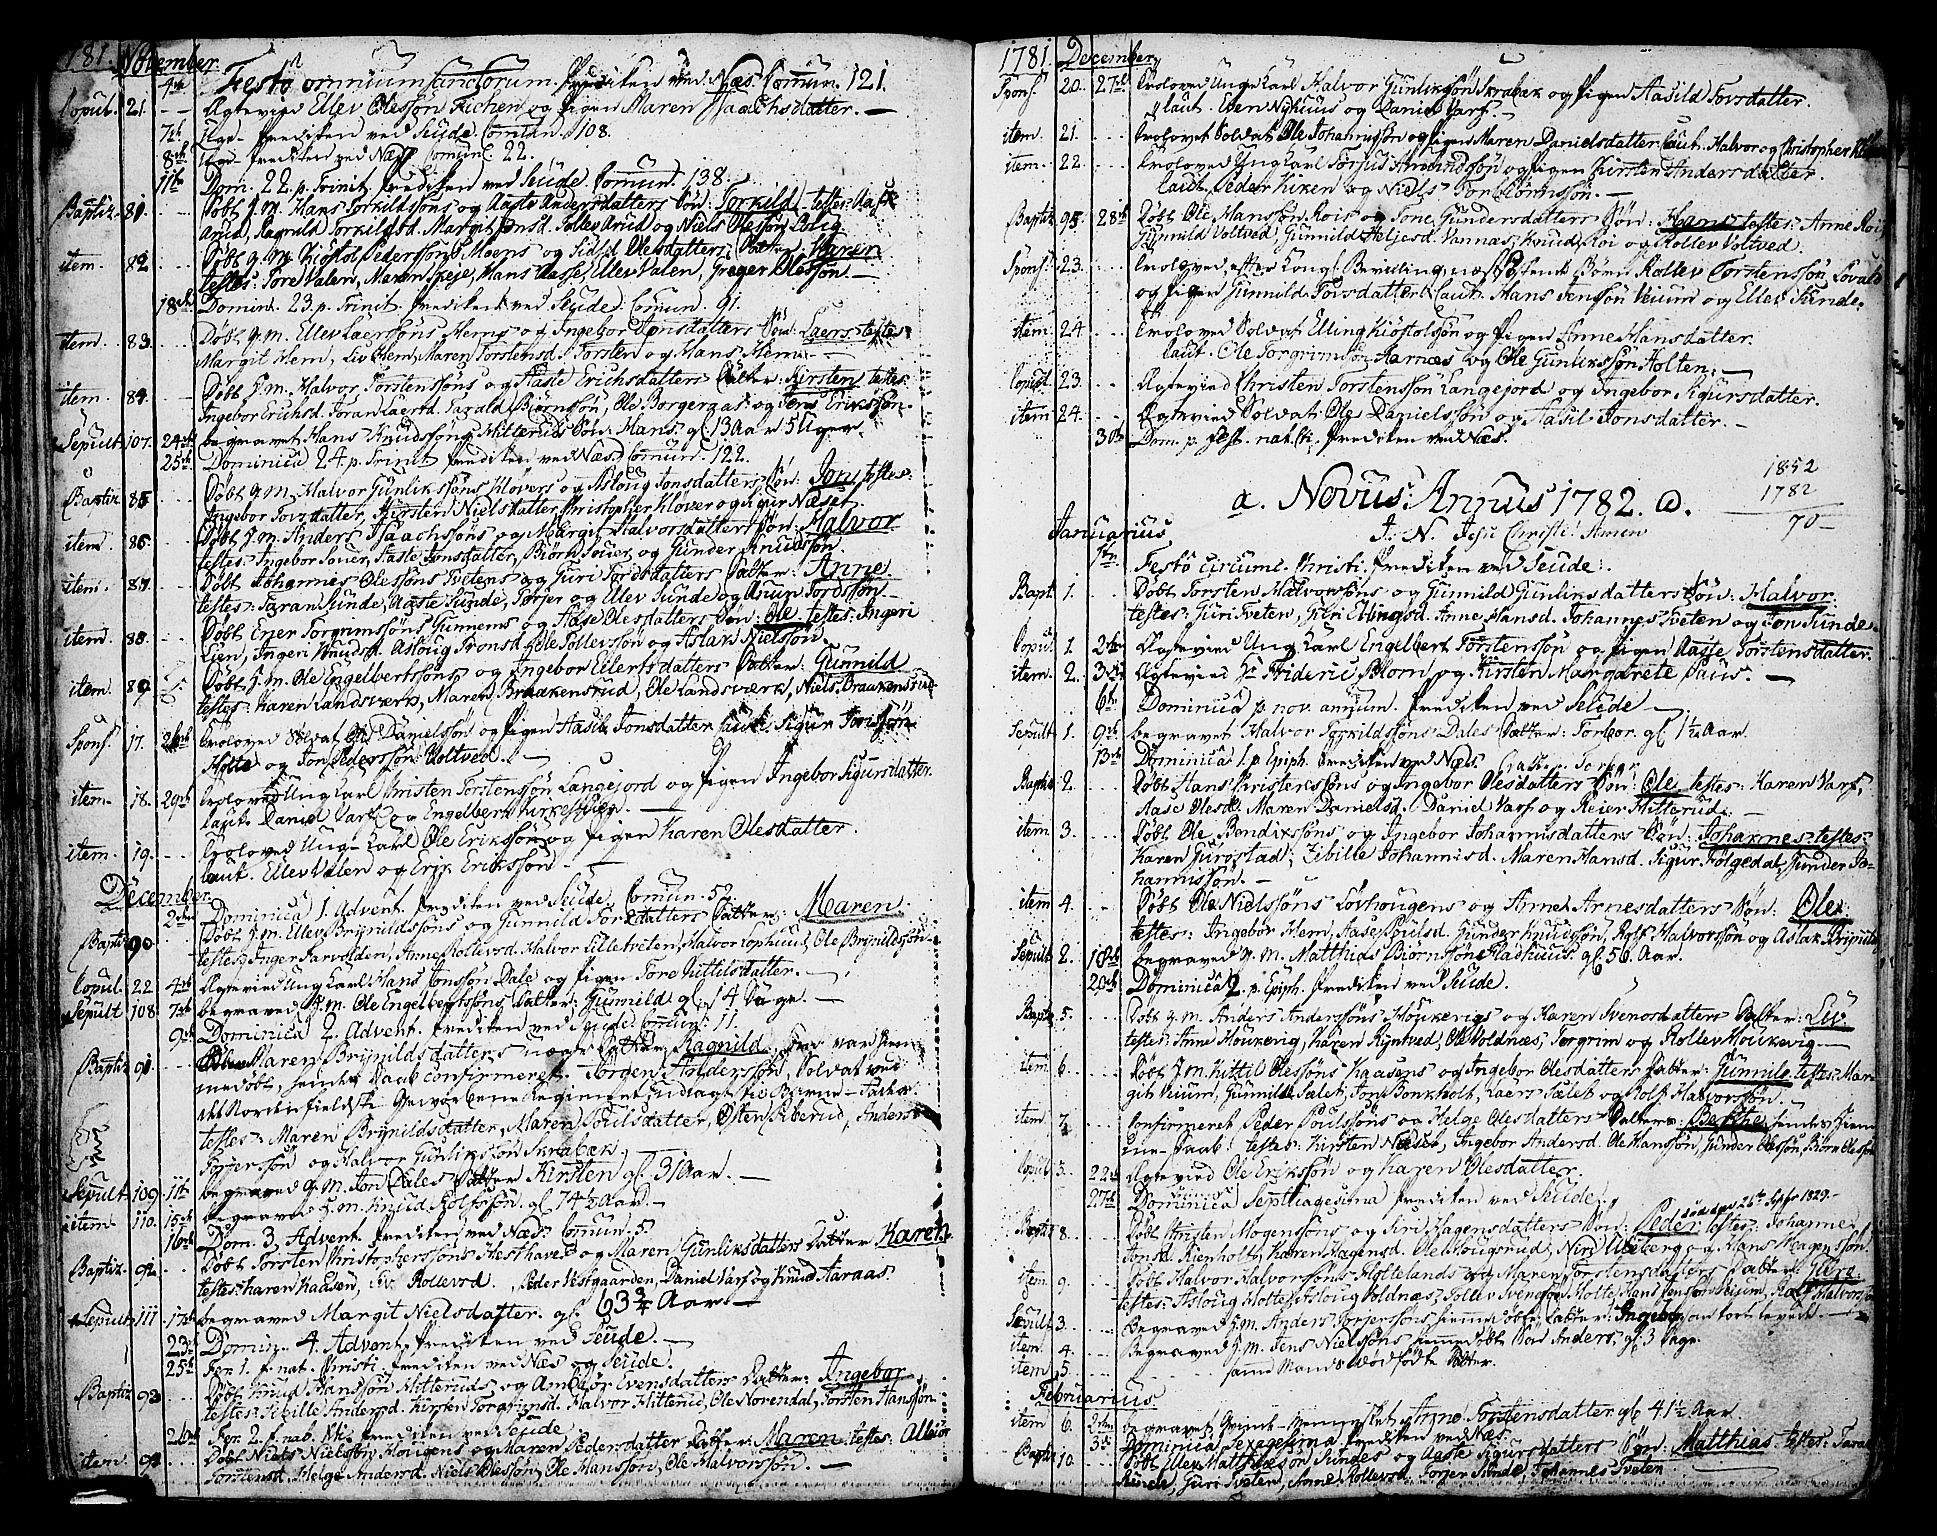 1781. November.
4de Festo omnium Sanctorum. Prædiken ved Næs. Comun. 121.
Copul. 21. -- Ægtevied Ellev Olessøn Kichen og Pigen Maren Isaachsdatter. —
7de Prædiken ved Seude. Comun. 108.
8de Prædiken ved Næs. Comun. 22.
11te Dom. 22. p. Trinit. Prædiken ved Seude. Comun. 138.
Baptiz. 81. Døbt J. M. Hans Torkildsøns og Aaste Andersdatters Søn: Torkild, testes: Aase
Arud, Ragnild Torkildsd. Margit Jonsd. Tollev Arud og Niels Olessøn Bolig
item. 82. Døbt g. M. Kiøstol Pedersøns Moens og Sidsel Olesdatters Datter: Karen
testes: Tore Valen, Maren Speje, Hans Aasse, Ellev Valen, Greger Olessøn. —
18de Domin. 23. p. Trinit. Prædiken ved Seude. Comun. 91.
item. 83. Døbt g. M. Ellev Laerssøns Hems og Ingebor Jonsdatters Søn: Laers, testes:
Margit Hem, Liv Hem, Maren Torstensd. Torsten og Hans Hem. —
item. 84. Døbt J. M. Halvor Torstenssøns og Aaste Erichsdatters Datter: Kirsten, testes:
Ingebor Erichsd. Joran Laersd. Tarald Biørnssøn, Ole Borgeraas og Jens Erikssøn.
Sepult. 107. 24de begravet Hans Knudssøns Hitteruds Søn: Hans gl. 13 Aar 5 Uger.
25de Dominica 24. p. Trinit. Prædiken ved Næs. Comun. 122.
Baptiz. 85. Døbt g. M. Halvor Gunlikssøns Kløvers og Asloug Jonsdatters Søn: Jon, testes:
Ingebor Torsdatter, Kirsten Nielsdatter, Christopher Kløver og Sigur Næset.
item. 86. Døbt J. M. Anders Isaachssøns og Margit Halvorsdatters Søn: Halvor
testes: Ingebor Souer, Aaste Jonsdatter, Biørn Souer, og Gunder Knudssøn.
item. 87. Døbt Johannes Olessøns Tvetens og Guri Toresdatters Datter: Anne.
testes: Taran Sunde, Aaste Sunde, Torjer og Ellev Sunde og Aslun Tordssøn. —
item. 88. Døbt Erier Torgrimssøns Gunnems og Aase Olesdatters Søn: Ole, testes: Ingeri
Lien, Ingeri Knudsd. Asloug Tronsd. Ole Tollevssøn og Aslak Nielssøn.
item. 89. Døbt J. M. Ole Engelbertssøns og Ingebor Ellertsdatters Datter: Gunnild
testes: Karen Landsværk, Maren Braakensrud, Ole Landsværk, Niels Braakensrud
Spons. 17. Troloved Soldat Ole Danielsøn og Pigen Aasil Jonsdatter. Caut. Sigur Torssøn
Holte og Jon Pederssøn Voltved. —
item. 18. 29de Trolovet Ung Karl Christen Torstenssøn Langejord og Pigen Ingebor Sigursdatter.
Caut. Daniel Varf og Engelbert Kirkeskien. —
item. 19. Trolovet Ung-Karl Ole Erikssøn og Pigen Karen Olesdatter.
Caut. Ellev Valen og Erix Erikssøn. —
December.
2den Dominica 1. Advent. Prædiken ved Seude. Comun. 52.
Baptiz. 90. Døbt J. M. Ellev Brynildssøns og Gunnild Torsdatters Datter: Maren.
testes: Inger Farvolden, Anne Rollevsd. Halvor Lilletveten, Halvor Tophuus, Ole Brynildssøn.
Copul. 22. 4de Ægtevied Ung Karl Hans Jonssøn Dale og Pigen Tore Kittilsdatter. —
Sepult 108. 7de begraved J. M. Ole Engelbertssøns Datter: Gunnild gl. 14 Dage. —
9de Dominica 2. Advent. Prædiken ved Seude. Comun. 11.
Baptiz. 91. Maren Brynildsdatters uægte Datter Ragnild, som var hiem-
medøbt, hendes Daab confirmeret. Jørgen Andersøn, Soldat ved
det Nordenfieldske Geworbene Regiment udlagt til Barne-Fader.
testes: Maren Brynildsdatter, Maren Poulsdatter, Osten Biberud, Anders
Torjerssøn og Halvor Gunlikssøn Skrabæk.
Sepult. 109. 11te begraved g. M. Jon Dales Datter Kirsten gl. 31 Aar. —
item. 110. 15de begraved J. M. Knud Rolfssøn, gl. 74½ Aar. —
16de Dom. 3. Advent. Prædiken ved Næs. Comun. 5.
Baptiz. 92. Døbt Torsten Christopherssøns Hesthaves og Maren Gunliksdatters Datter Karen.
testes: Karen Kaasen, Liv Rollevsd. Peder Vestgaarden, Daniel Varf og Knud Aaraas.
Sepult. 111. 17de begraved Margit Nielsdatter. gl. 63¾ Aar. —
23de Domin. 4. Advent. Prædiken ved Seude. —
25de Fer. 1. f. nat. Christi. Prædiken ved Næs og Seude.
Baptiz. 93. Døbt Knud Hanssøn Hitteruds og Ambiør Evensdatters Datter: Ingebor
testes: Sibille Andersd. Kirsten Torgrimsd. Halvor Hitterud, Ole Norendal, Torsten Hanssøn.
26de Fer. 2. f. nab. Chr. Prædiken ved Seude
item. 94. Døbt Niels Nielssøn Hougens og Maren Pedersdatter Datter: Maren, testes: Albiør
Torstensd. Helge Andersd. Niels Olessøn, Ole Hanssøn, Ole Halvorssøn. —
1781. December.
Spons. 20. 27de Troloved Unge Karl Halvor Gunlikssøn Skrabæk og Pigen Aasild Torsdatter.
Caut. Even Nyhuus og Daniel Varf. —
item. 21. Trolovet Soldat Ole Johannessøn og Pigen Maren Danielsdatter. Caut. Halvor og Christopher
item. 22. Trolovet Ung Karl Torjus Amundssøn og Pigen Kirsten Andersdatter.
Caut. Peder Kiken og Niels Torbiørnssøn. —
Bapt. 95. 28de Døbt Ole Hanssøn Rois og Tone Gundersdatters Søn: Hans, testes: Anne Roi,
Gunnild Voltved, Gunnild Heljesd. Vannas, Knud Roi og Rollev Voltved.
Spons. 23. Trolovet, efter Kongl. Bevilling, næst-Søskende Børn Rollev Torstenssøn Lovald
og Pigen Gunnild Torsdatter. Caut. Hans Jenssøn Veium og Ellev Sunde.
item. 24. Trolovet Soldat Elling Kiøstolssøn og Pigen Anne Hansdatter.
Caut. Ole Torgrimssøn Aarnæs og Ole Gunlikssøn Holten. —
Copul. 23. Ægtevied Christen Torstenssøn Langejord og Ingebor Sigursdatter.
item 24. Ægtevied Soldat Ole Danielssøn og Aasil Jonsdatter. —
30te Dom. p. Fest. nat. Chr. Prædiken ved Næs.
1852
1782
70 —
a. Novus: Annus 1782. ω.
J. N. Jesu Christi! Amen
Januarius
1ste Festo Circumc. Christi. Prædiken ved Seude.
Bapt. 1. Døbt Torsten Halvorssøns og Gunnild Gunliksdatters Søn: Halvor.
testes: Guri Tveten, Siri Ellingsd. Anne Hansd. Johannes Tveten og Jon Sunde.
Copul. 1. 2den Ægtevied Ung Karl Engelbert Torstenssøn og Pigen Aasse Torstensdatter.
item. 2. 3die Ægtevied Hr. Frideric Blom, og Kirsten Margarete Paus. —
6te Dominica p. nov. annum. Prædiken ved Seude —
Sepult. 1. 9de begravet Halvor Torkildssøns Dales Datter: Torbor. gl. 1½ Aar.
13de Dominica 1. p. Epiph. Prædiken ved Næs.
Baptiz 2. Døbt Hans Christenssøns og Ingebor Olesdatters Søn: Ole, testes: Karen Varf,
Aase Olesd. Maren Danielsd. Daniel Varf og Reier Hitterud.
item 3. Døbt Ole Bendixsøns og Ingebor Johannisdatters Søn: Johannes, testes:
Karen Gurostad, Zibille Johannisd. Maren Hansd. Sigur Følgedal, Gunder Jo-
hannissøn. —
item 4. Døbt Ole Nielssøns Løvhougens og Anne Arnesdatters Søn: Ole.
testes: Ingebor Hem, Aase Poulsd. Gunder Knudssøn, Rolf Halvorssøn og Aslak Brynilds
Sepult 2. 18de begraved g. M. Matthias Biørnssøn Fladhuus. gl. 56 Aar.
20de Dominica 2. p. Epiph. Prædiken ved Seude.
Bapt. 5. Døbt g. M. Anders Anderssøns Houkevigs og Karen Svenosdatters Datter: Liv.
testes: Anne Houkevig, Karen Ryntved, Ole Voldnæs, Torgrim og Rollev Houkevig. —
item 6. Døbt J. M. Kittil Olessøns Kaasens og Ingebor Olesdatters Datter: Gunnild, testes: Mar-
git Veium, Gunnild Sælet, Jone Bonkholt, Laers Sælet og Rolf Halvorssøn. —
item 7. Confirmeret Peder Poulssøns og Helge Olesdatters Datters: Berthe hendes Hiem-
me-Daab: testes: Kirsten Næset, Ingebor Andersd. Ole Hanssøn, Gunder Olessøn, Biørn Olessøn
Copul. 3. 22de Ægtevied Ole Erikssøn og Karen Olesdatter.
27de Dominica Septuagesima Prædiken ved Seude.
død den 26de Septbr 1829.
Bapt 8. Døbt Christen Mogenssøns og Siri Hagensdatters Søn: Peder, testes: Johanne
Jonsd. Rienholt, Karen Hagensd. Ole Hougsrud, Niri Ubeberg og Hans Mogenssøn.
item 9. Døbt Halvor Halvorssøns Holtelands og Maren Torstensdatters Datter: Guro:
testes: Asloug Holte, Asloug Voldnæs, Tollev Svenssøn Holte, Hans Jenssøn Veium, Rolf Halvorssø
Sepult 3. Begraved J. M. Anders Torjerssøns hiemmedøbte Datter: Ingebor som kort levede. —
item. 4. Begraved J. M. Jens Nielssøns hiemmedøbt Søn Anders, gl. 3 Dage.
item 5. samme Mands dødfødte Datter.
Februarius.
item 6. 2den begravet Qvinde-Mennesket Anne Torstensdatter gl. 41½ Aar.
3die Dominica Sexagesima Prædiken ved Næs.
Baptiz 10. Døbt Ellev Matthiassøn Sundes og Aaste Sigursdatters Søn: Matthias, testes: Taran
Sunde, Guri Tveten, Anne Rollevsd. Torjer Sunde, Johannes Tveten